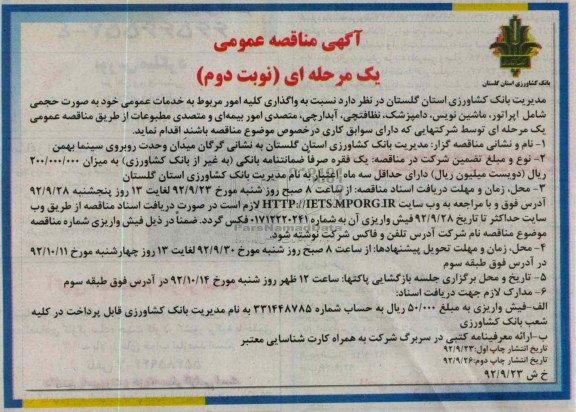 آگهی مناقصه عمومی
یک مرحله ای (نوبت دوم)
بانک کشاورزی استان گلستان
مدیریت بانک کشاورزی استان گلستان در نظر دارد نسبت به واگذاری کلیه امور مربوط به خدمات عمومی خود به صورت حجمی
شامل اپراتور، ماشین نویس، دامپزشک، نظافتچی، آبدارچی، متصدی امور بیمه‌ای و متصدی مطبوعات از طریق مناقصه عمومی
یک مرحله ای توسط شرکتهایی که دارای سوابق کاری درخصوص موضوع مناقصه باشند اقدام نماید.
۱- نام و نشانی مناقصه گزار: مدیریت بانک کشاورزی استان گلستان به نشانی گرگان میدان وحدت روبروی سینما بهمن
۲- نوع و مبلغ تضمین شرکت در مناقصه: یک فقره صرفاً ضمانتنامه بانکی (به غیر از بانک کشاورزی) به میزان ۲۰۰/۰۰۰/۰۰۰
ریال (دویست میلیون ریال) دارای حداقل سه ماه اعتبار به نام مدیریت بانک کشاورزی استان گلستان
۳- محل، زمان و مهلت دریافت اسناد مناقصه: از ساعت ۸ صبح روز شنبه مورخ ۹۲/۹/۲۳ لغایت ۱۳ روز پنجشنبه ۹۲/۹/۲۸
آدرس فوق و با مراجعه به وب سایت HTTP://IETS.MPORG.IR لازم است در صورت دریافت اسناد مناقصه از طریق وب
سایت حداکثر تا تاریخ ۹۲/۹/۲۸ فیش واریزی آن به شماره ۰۱۷۱۲۲۲۰۲۴۱ فکس گردد. ضمناً در ذیل فیش واریزی شماره مناقصه
موضوع مناقصه نام شرکت آدرس تلفن و فاکس شرکت نوشته شود.
۴- محل، زمان و مهلت تحویل پیشنهادها: از ساعت ۸ صبح روز شنبه مورخ ۹۲/۹/۳۰ لغایت ۱۳ روز چهارشنبه مورخ ۹۲/۱۰/۱۱
در آدرس فوق طبقه سوم
۵- تاریخ و محل برگزاری جلسه بازگشایی پاکتها: ساعت ۱۲ ظهر روز شنبه مورخ ۹۲/۱۰/۱۴ در آدرس فوق طبقه سوم
۶- مدارک لازم جهت دریافت اسناد:
الف-فیش واریزی به مبلغ ۵۰/۰۰۰ ریال به حساب شماره ۳۳۱۴۴۸۷۸۵ به نام مدیریت بانک کشاورزی قابل پرداخت در کلیه
شعب بانک کشاورزی
ب-ارائه معرفینامه کتبی در سربرگ شرکت به همراه کارت شناسایی معتبر
تاریخ انتشار چاپ اول: ۹۲/۹/۲۳
تاریخ انتشار چاپ دوم: ۹۲/۹/۲۶
خ ش ۹۲/۹/۲۳